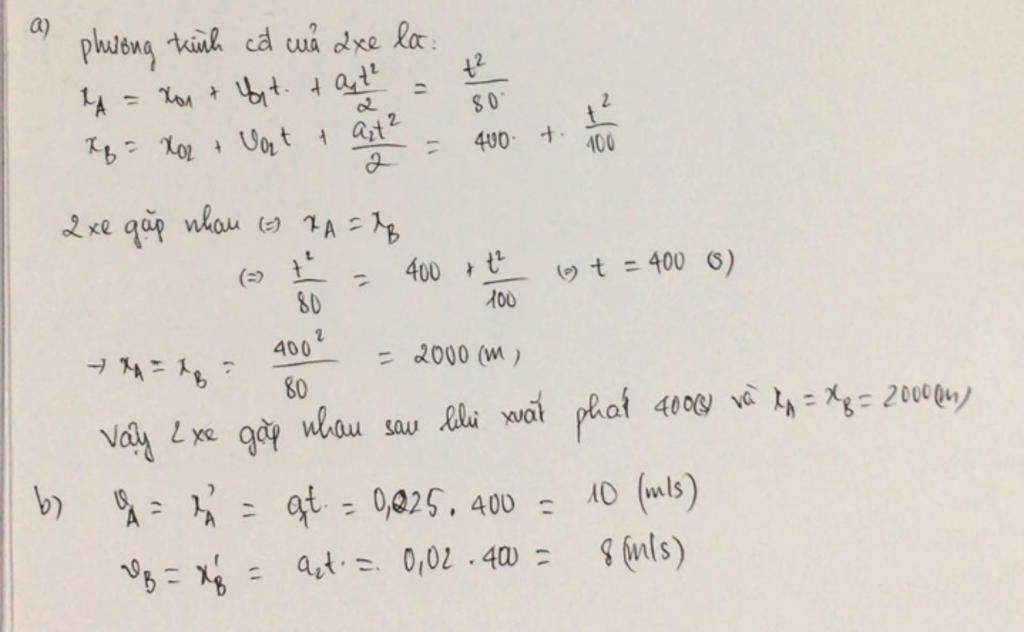 a) phương trình cđ của 2 xe là:
x_A = x_01 + v_01 t + a_1t²/2 = t²/80
x_B = x_02 + v_02 t + a_2t²/2 = 400 + t²/100
2 xe gặp nhau (=) x_A = x_B
(=) t²/80 = 400 + t²/100 (=) t = 400 (s)
→ x_A = x_B = 400²/80 = 2000 (m)
Vậy 2 xe gặp nhau sau khi xuất phát 400(s) và x_A = x_B = 2000(m)
b) v_A = x'_A = a_1t = 0,025 . 400 = 10 (m/s)
v_B = x'_B = a_2t = 0,02 . 400 = 8 (m/s)